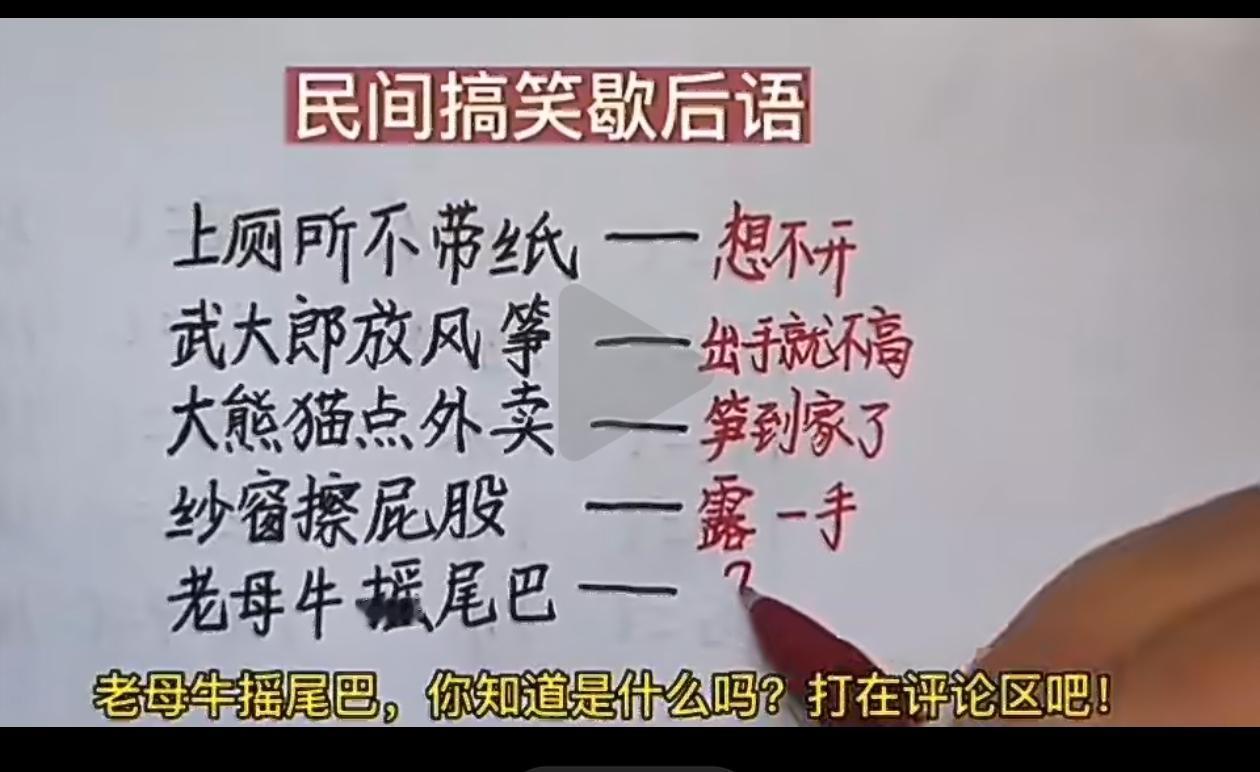 民间搞笑歇后语
上厕所不带纸 — 想不开
武大郎放风筝 — 出手就不高
大熊猫点外卖 — 笋到家了
纱窗擦屁股 — 露一手
老母牛摇尾巴 — ?
老母牛摇尾巴，你知道是什么吗？打在评论区吧！